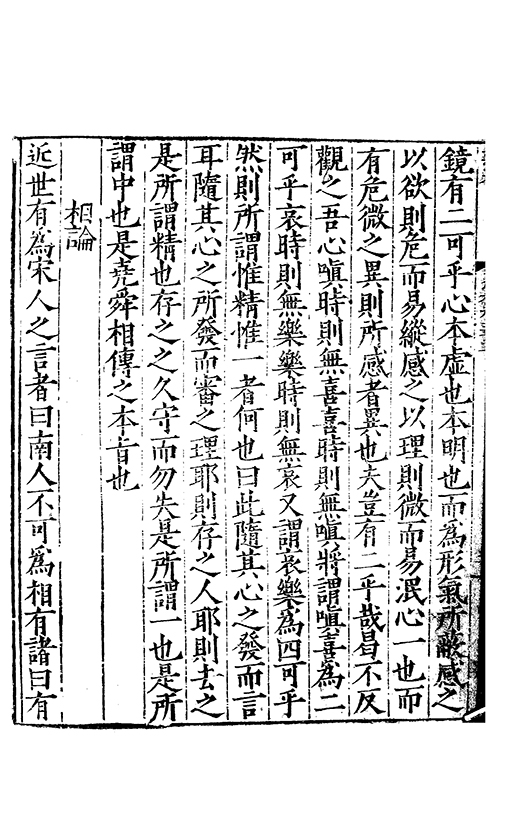 鏡有二可乎心本虛也本明也而爲形氣所蔽感之
以欲則危而易縱感之以理則微而易泯心一也而
有危微之異則所感者異也夫豈有二乎哉曷不反
觀之吾心嗔時則無喜喜時則無嗔將謂嗔喜爲二
可乎哀時則無樂樂時則無哀又謂哀樂爲四可乎
然則所謂惟精惟一者何也曰此隨其心之發而言
耳隨其心之所發而審之理耶則存之人耶則去之
是所謂精也存之之久守而勿失是所謂一也是所
謂中也是堯舜相傳之本旨也
相論
近世有爲宋人之言者曰南人不可爲相有諸曰有